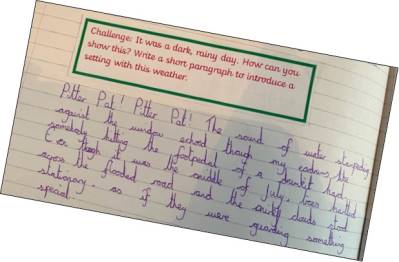 Challenge: It was a dark, rainy day. How can you
show this? Write a short paragraph to introduce a
setting with this weather.
Pitter Pat! Pitter Pat! The sound of water
against the window echoed though my eardrums, like
somebody hitting the footpedal of a drumkit hard.
Even though it was the middle of July, trees
across the flooded road and the clouds stood
stationary, as if they were guarding something
special.